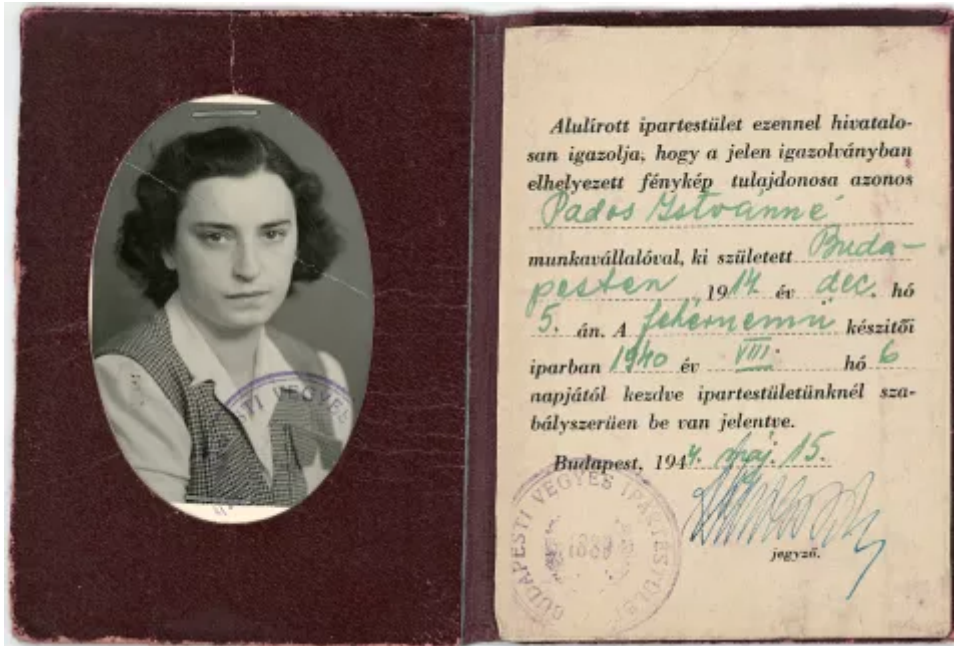 Alulírott ipartestület ezennel hivatalo-
san igazolja, hogy a jelen igazolványban
elhelyezett fénykép tulajdonosa azonos
Pados Istvánné
munkavállalóval, ki született Buda-
pesten 1914. év dec. hó
5. án. A fehérnemű készitői
iparban 1940 év VIII. hó 6
napjától kezdve ipartestületünknél sza-
bályszerüen be van jelentve.
Budapest, 1944. máj. 15.
BUDAPESTI VEGYES IPARTESTÜLET
jegyző.
STI VEGYES